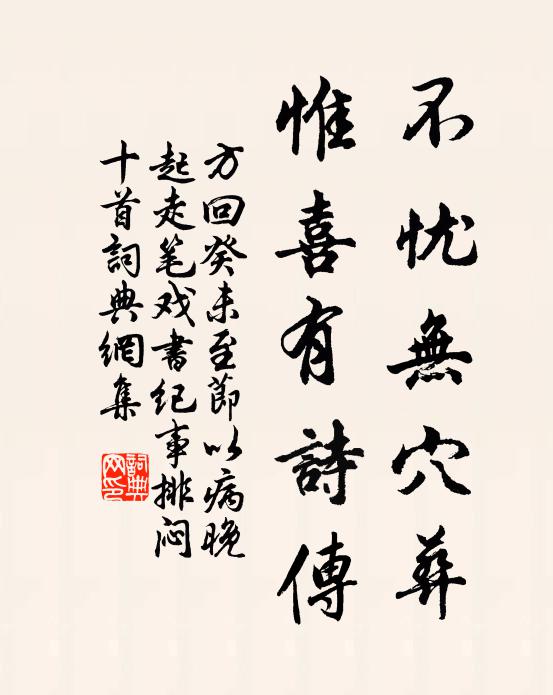 不忧無穴葬
惟喜有詩傳
方回癸未至節以病晚
起走笔戏書纪事排闷
十首詞典網集
詞典
网印